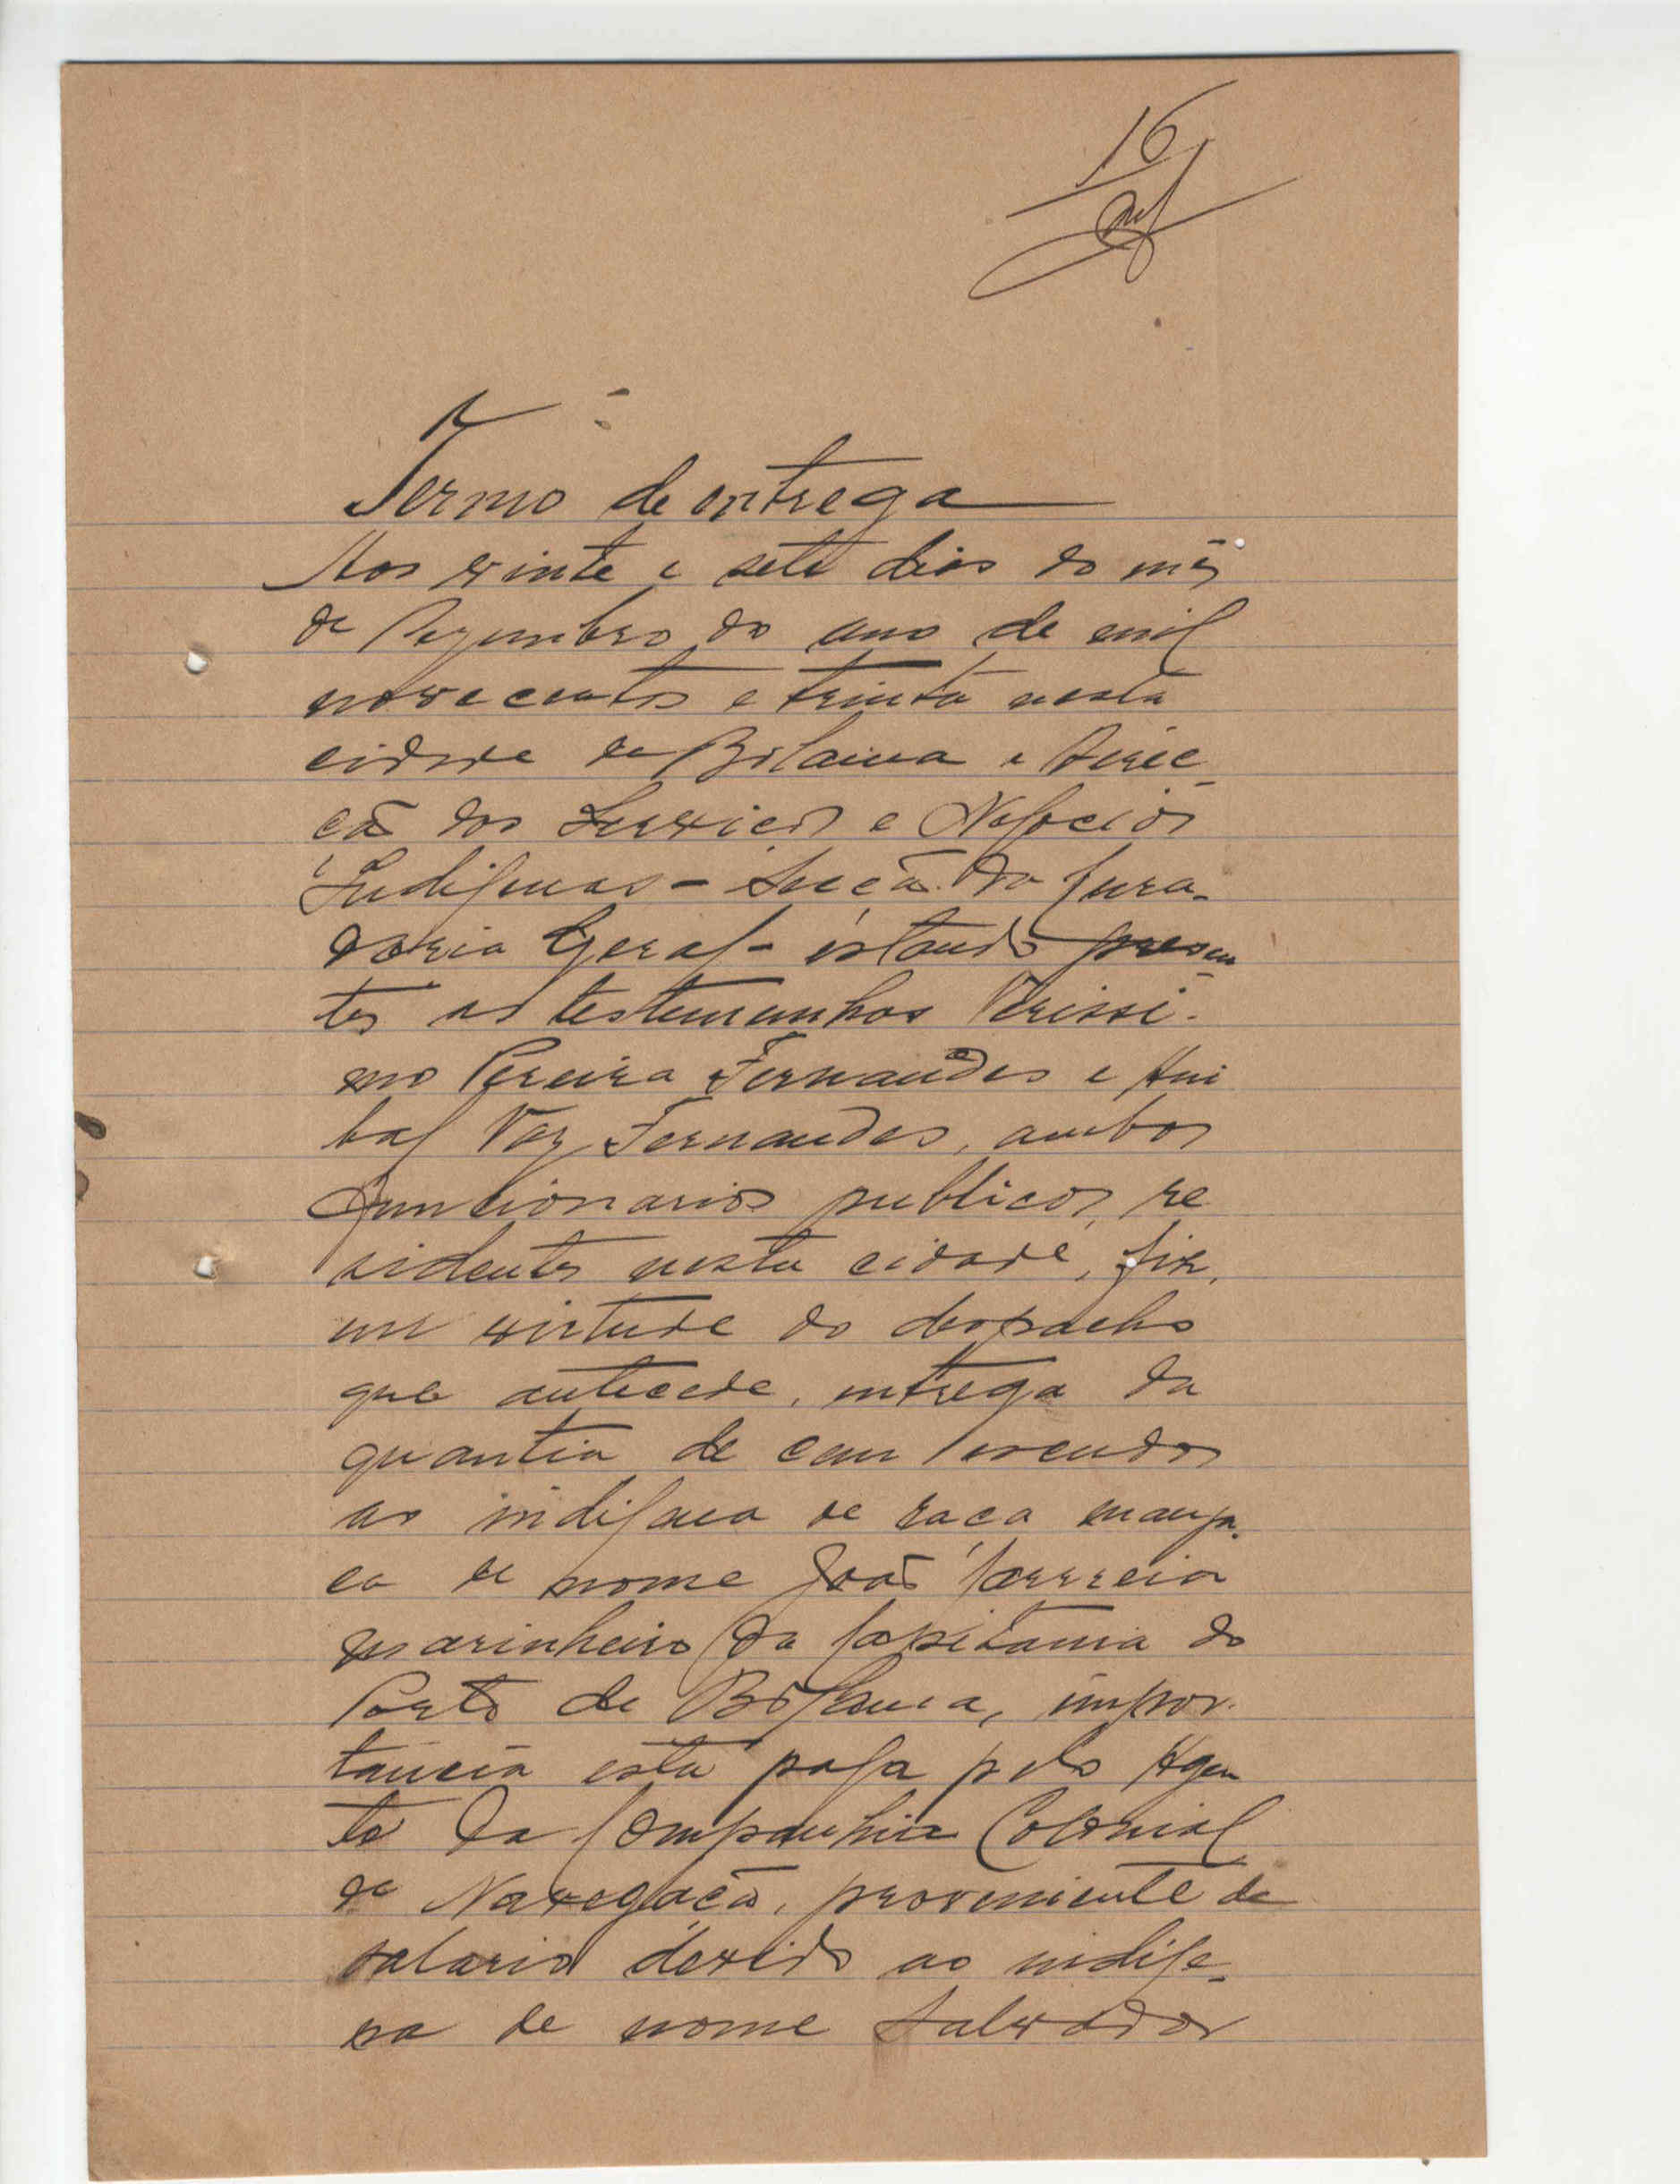 16
Termo de entrega
Aos vinte e sete dias do mês
de Dezembro do ano de mil
novecentos e trinta nesta
cidade de Bolama e Direc-
ção dos Serviços e Negocios
Indigenas - Secção da Cura-
doria Geral - estando presen
tes as testemunhas Verissi-
mo Pereira Fernandes e Ani
bal Vaz Fernandes, ambos
funcionarios publicos, re
sidentes nesta cidade, fiz,
em virtude do despacho
que antecede, entrega da
quantia de cem escudos
ao indigena de raça manja-
ca de nome João Correia
marinheiro da Capitania do
Porto de Bolama, impor-
tancia esta paga pelo Agen
te da Companhia Colonial
de Navegação, proveniente de
salario devido ao indige-
na de nome Salvador